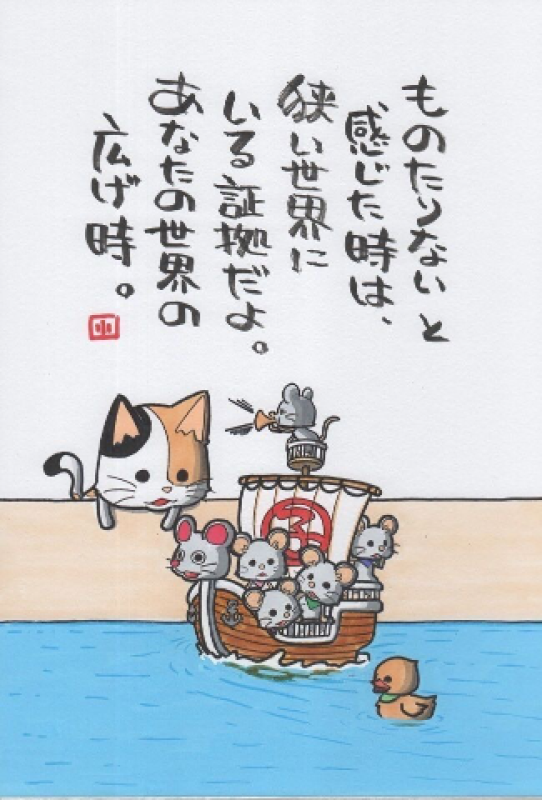 ものたりないと
感じた時は、
狭い世界に
いる証拠だよ。
あなたの世界の
広げ時。
小
子